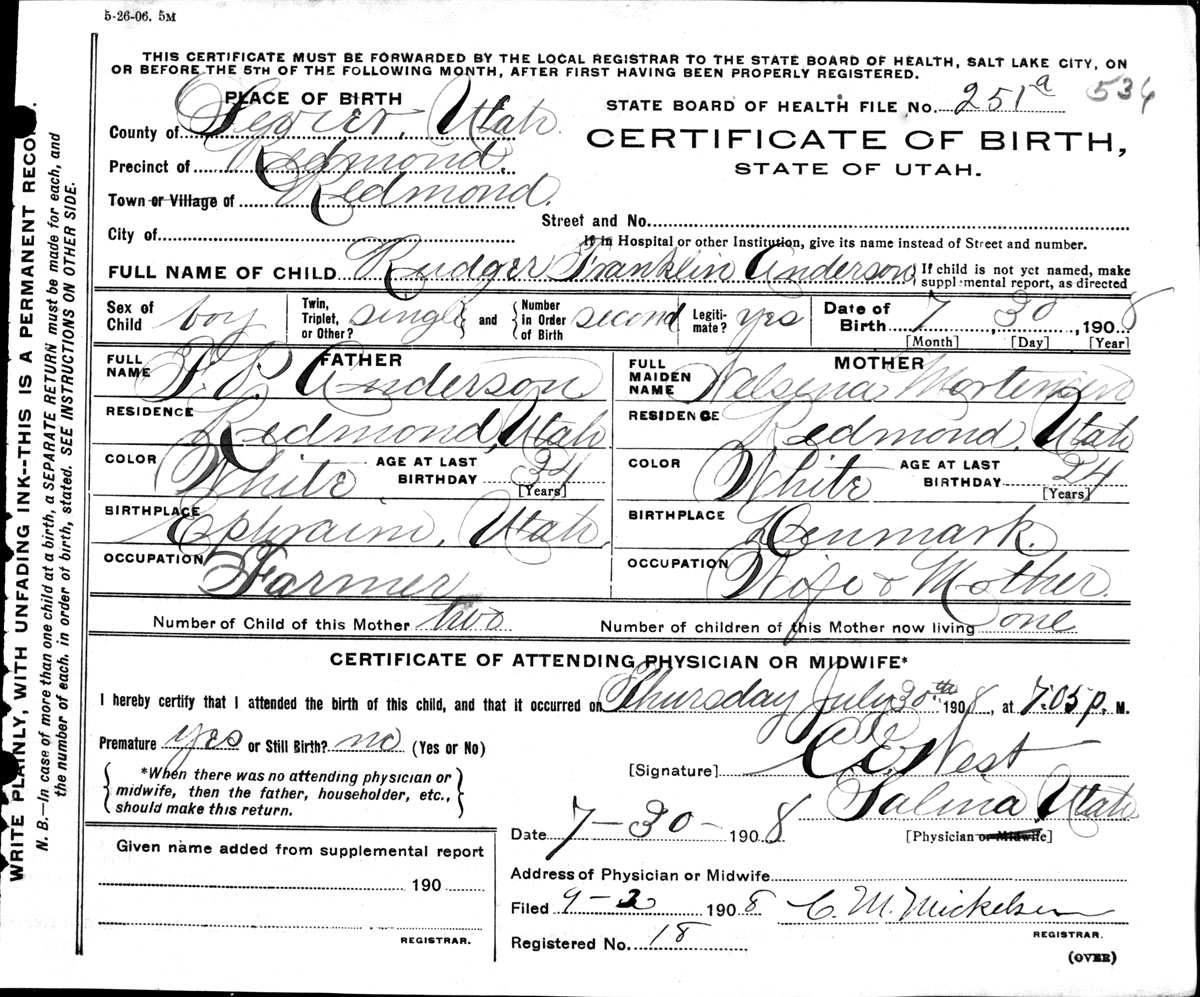 5-26-06. 5M
THIS CERTIFICATE MUST BE FORWARDED BY THE LOCAL REGISTRAR TO THE STATE BOARD OF HEALTH, SALT LAKE CITY, ON
OR BEFORE THE 5TH OF THE FOLLOWING MONTH, AFTER FIRST HAVING BEEN PROPERLY REGISTERED.
PLACE OF BIRTH
STATE BOARD OF HEALTH FILE No. 251a 536
County of Sevier, Utah.
CERTIFICATE OF BIRTH,
STATE OF UTAH.
Precinct of Redmond.
Town or Village of Redmond.
Street and No.
City of
If in Hospital or other Institution, give its name instead of Street and number.
FULL NAME OF CHILD Rudger Franklin Anderson
If child is not yet named, make
supplemental report, as directed
Sex of Child boy
Twin, Triplet, or Other? single and Number in Order of Birth second
Legitimate? yes
Date of Birth 7, 30, 1908
[Month] [Day] [Year]
FATHER
FULL NAME Anderson
RESIDENCE Redmond, Utah
COLOR White AGE AT LAST BIRTHDAY 34
[Years]
BIRTHPLACE Ephraim, Utah.
OCCUPATION Farmer
MOTHER
FULL MAIDEN NAME Nelsena Mortensen
RESIDENCE Redmond, Utah
COLOR White AGE AT LAST BIRTHDAY 24
[Years]
BIRTHPLACE Denmark.
OCCUPATION Wife & Mother.
Number of Child of this Mother two
Number of children of this Mother now living one
CERTIFICATE OF ATTENDING PHYSICIAN OR MIDWIFE*
I hereby certify that I attended the birth of this child, and that it occurred on Thursday July 30th 1908, at 7.05 p. M.
Premature yes or Still Birth? no (Yes or No)
*When there was no attending physician or
midwife, then the father, householder, etc.,
should make this return.
[Signature] C.E. West
Salina, Utah
[Physician or Midwife]
Date 7-30-1908
Given name added from supplemental report
190
REGISTRAR.
Address of Physician or Midwife
Filed 9-2 1908 C. M. Mickelsen
REGISTRAR.
Registered No. 18
(OVER)
WRITE PLAINLY, WITH UNFADING INK--THIS IS A PERMANENT RECORD.
N. B.—In case of more than one child at a birth, a SEPARATE RETURN must be made for each, and
the number of each. in order of birth, stated. SEE INSTRUCTIONS ON OTHER SIDE.